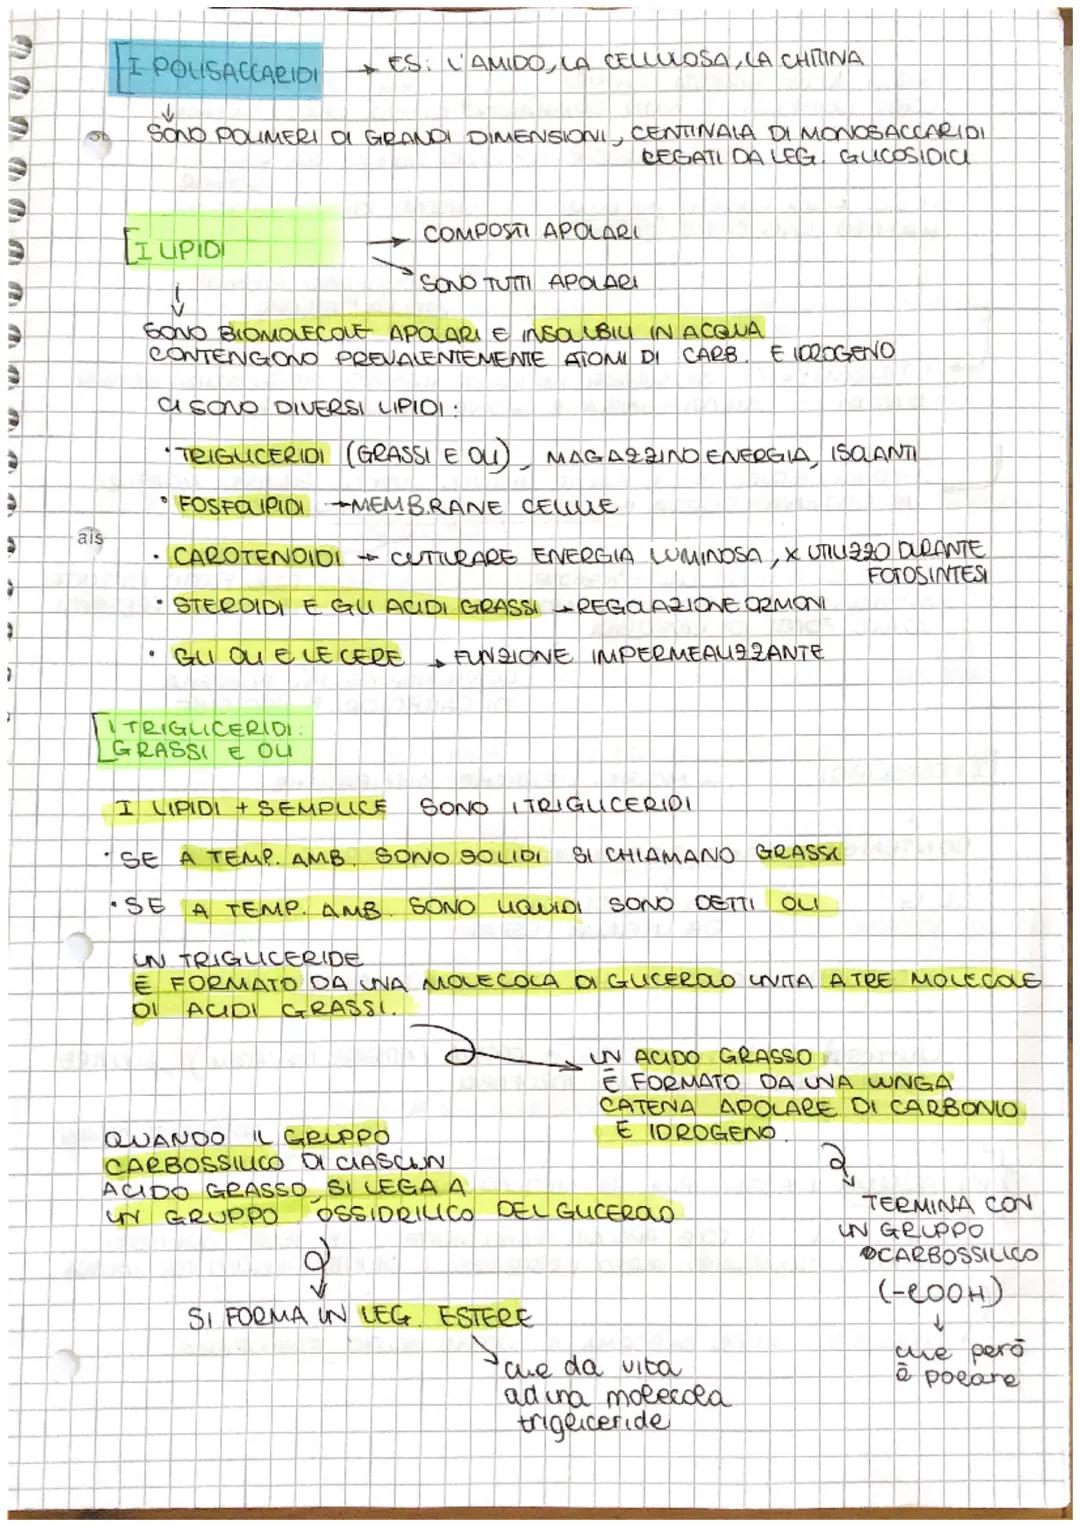 I POLISACCARIDI → ES: L'AMIDO, LA CELLULOSA, LA CHITINA
SONO POLIMERI DI GRANDI DIMENSIONI, CENTINAIA DI MONOSACCARIDI
LEGATI DA LEG. GLICOSIDICI
I LIPIDI → COMPOSTI APOLARI
→ SONO TUTTI APOLARI
SONO BIOMOLECOLE APOLARI E INSOLUBILI IN ACQUA
CONTENGONO PREVALENTEMENTE ATOMI DI CARB. E IDROGENO
CI SONO DIVERSI LIPIDI:
• TRIGLICERIDI (GRASSI E OLI), MAGAZZINO ENERGIA, ISOLANTI
• FOSFOLIPIDI → MEMBRANE CELLULE
ais
• CAROTENOIDI → CUTTURARE ENERGIA LUMINOSA, X UTILIZZO DURANTE
FOTOSINTESI
• STEROIDI E GLI ACIDI GRASSI → REGOLAZIONE ORMONI
• GLI OLI E LE CERE → FUNZIONE IMPERMEALIZZANTE
I TRIGLICERIDI:
GRASSI E OLI
I LIPIDI + SEMPLICE SONO I TRIGLICERIDI
• SE A TEMP. AMB. SONO SOLIDI SI CHIAMANO GRASSI
• SE A TEMP. AMB. SONO LIQUIDI SONO DETTI OLI
UN TRIGLICERIDE
È FORMATO DA UNA MOLECOLA DI GLICEROLO UNITA A TRE MOLECOLE
DI ACIDI GRASSI.
UN ACIDO GRASSO
È FORMATO DA UNA LUNGA
CATENA APOLARE DI CARBONIO
E IDROGENO.
QUANDO IL GRUPPO
CARBOSSILICO DI CIASCUN
ACIDO GRASSO, SI LEGA A
UN GRUPPO OSSIDRILICO DEL GLICEROLO
TERMINA CON
UN GRUPPO
CARBOSSILICO
(-COOH)
SI FORMA UN LEG. ESTERE
che però
è polare
che da vita
ad una molecola
trigliceride